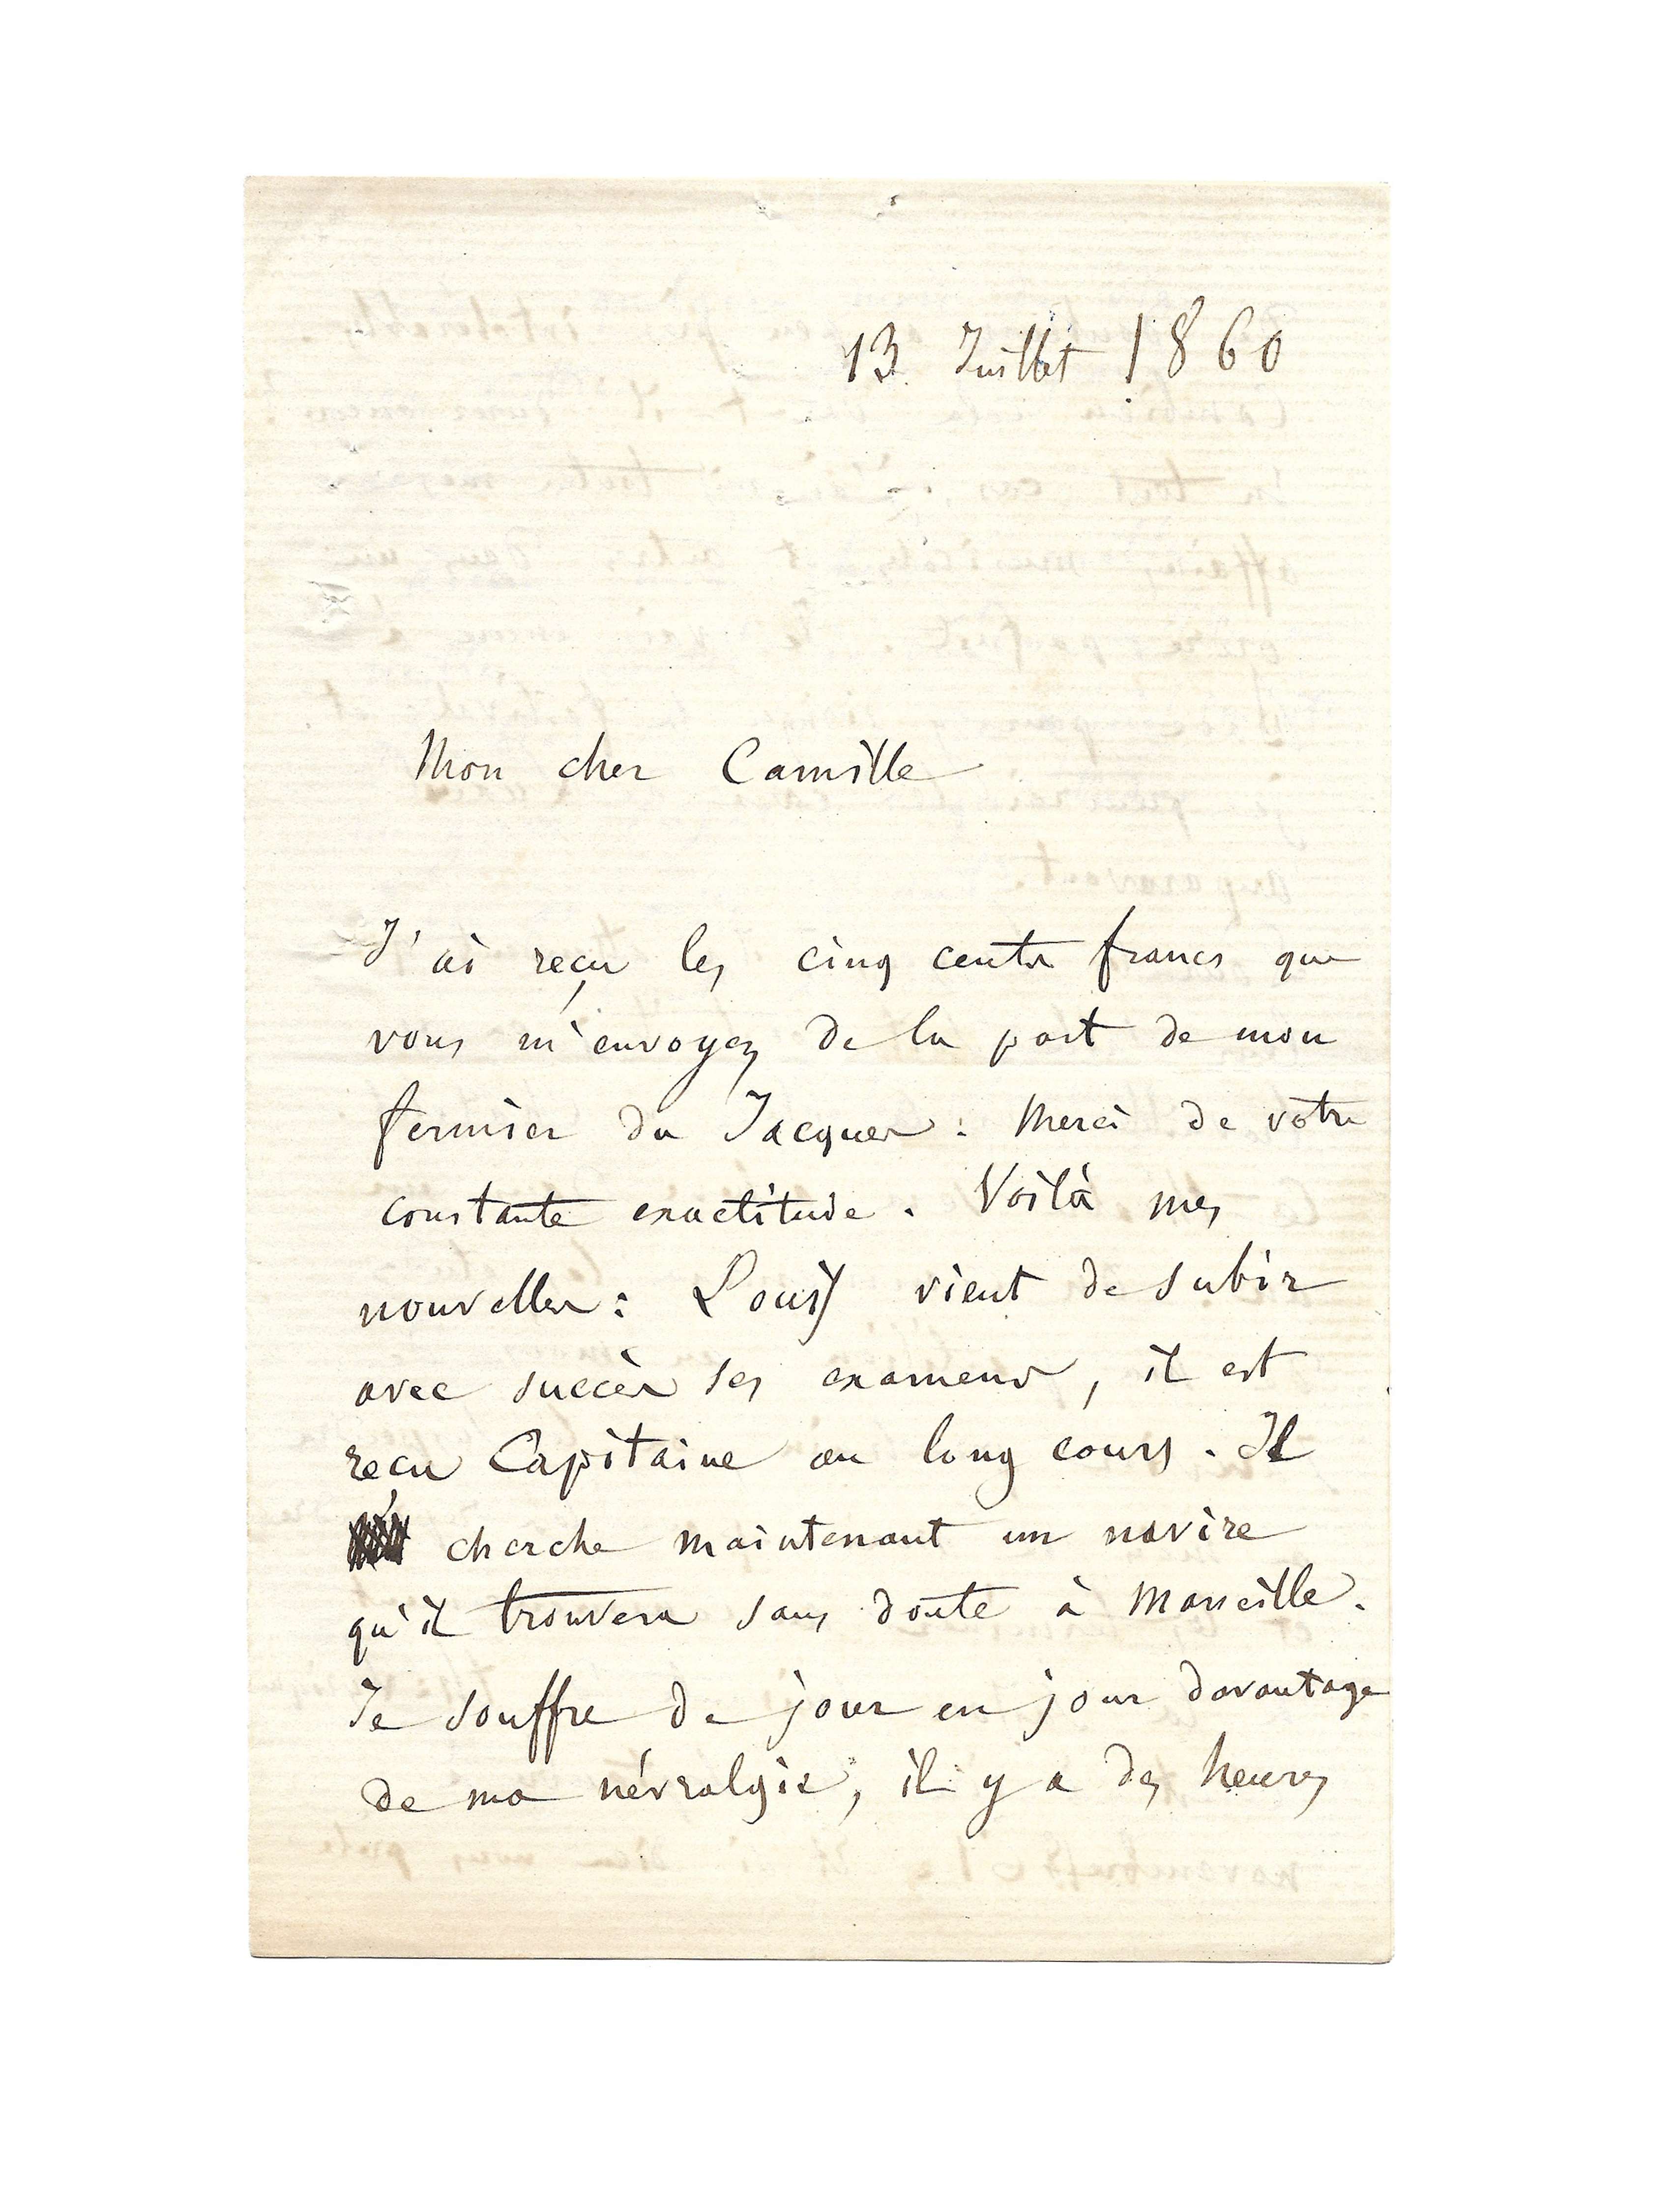 13 Juillet 1860
Mon cher Camille
J'ai reçu les cinq cents francs que
vous m'envoyez de la part de mon
fermier du Jacques. Merci de votre
constante exactitude. Voilà mes
nouvelles: Louis vient de subir
avec succès ses examens, il est
reçu Capitaine au long cours. Il
cherche maintenant un navire
qu'il trouvera sans doute à Marseille.
Je souffre de jour en jour davantage
de ma névralgie, il y a des heures